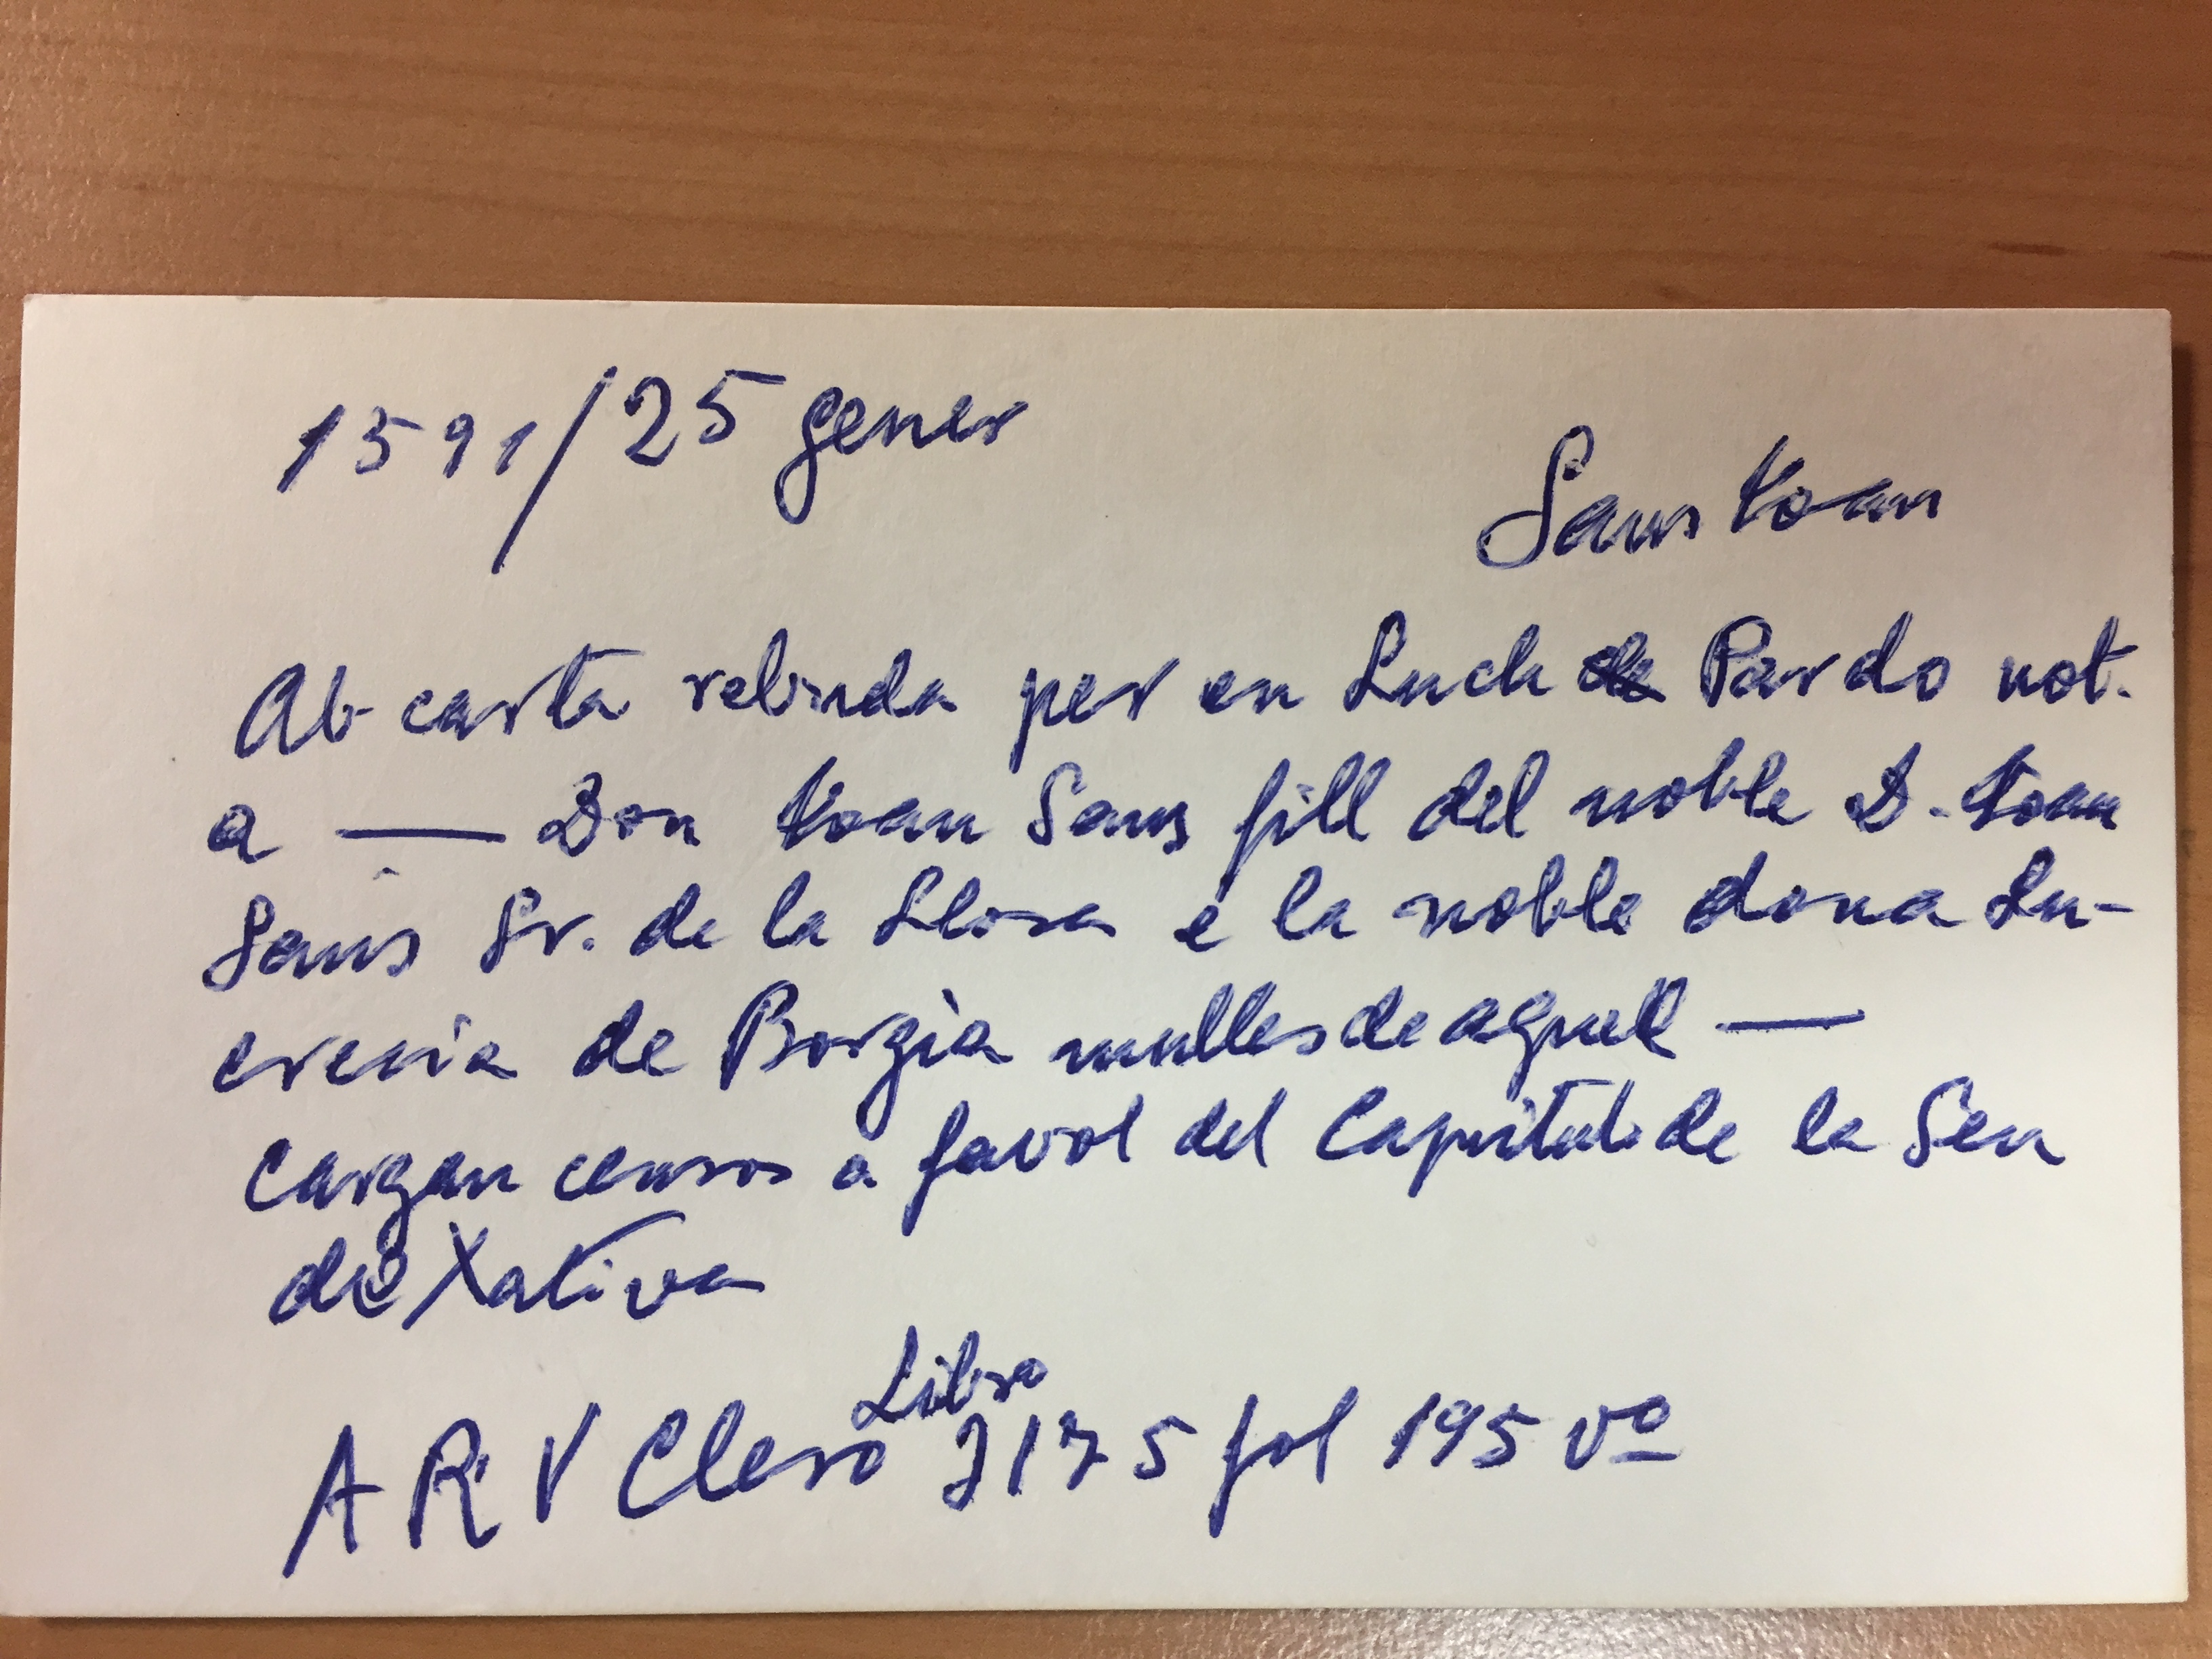 1591/25 gener
Sans Yoan
Ab carta rebuda per en Luch de Pardo not.
a — Don Yoan Sans fill del noble D. Yoan
Sans Sr. de la Llosa e la noble dona Lu-
crecia de Borgia muller de aquell —
cargan censos a favor del Capitul de la Seu
de Xativa
Libro
A R V Clero 3175 fol 195 vº